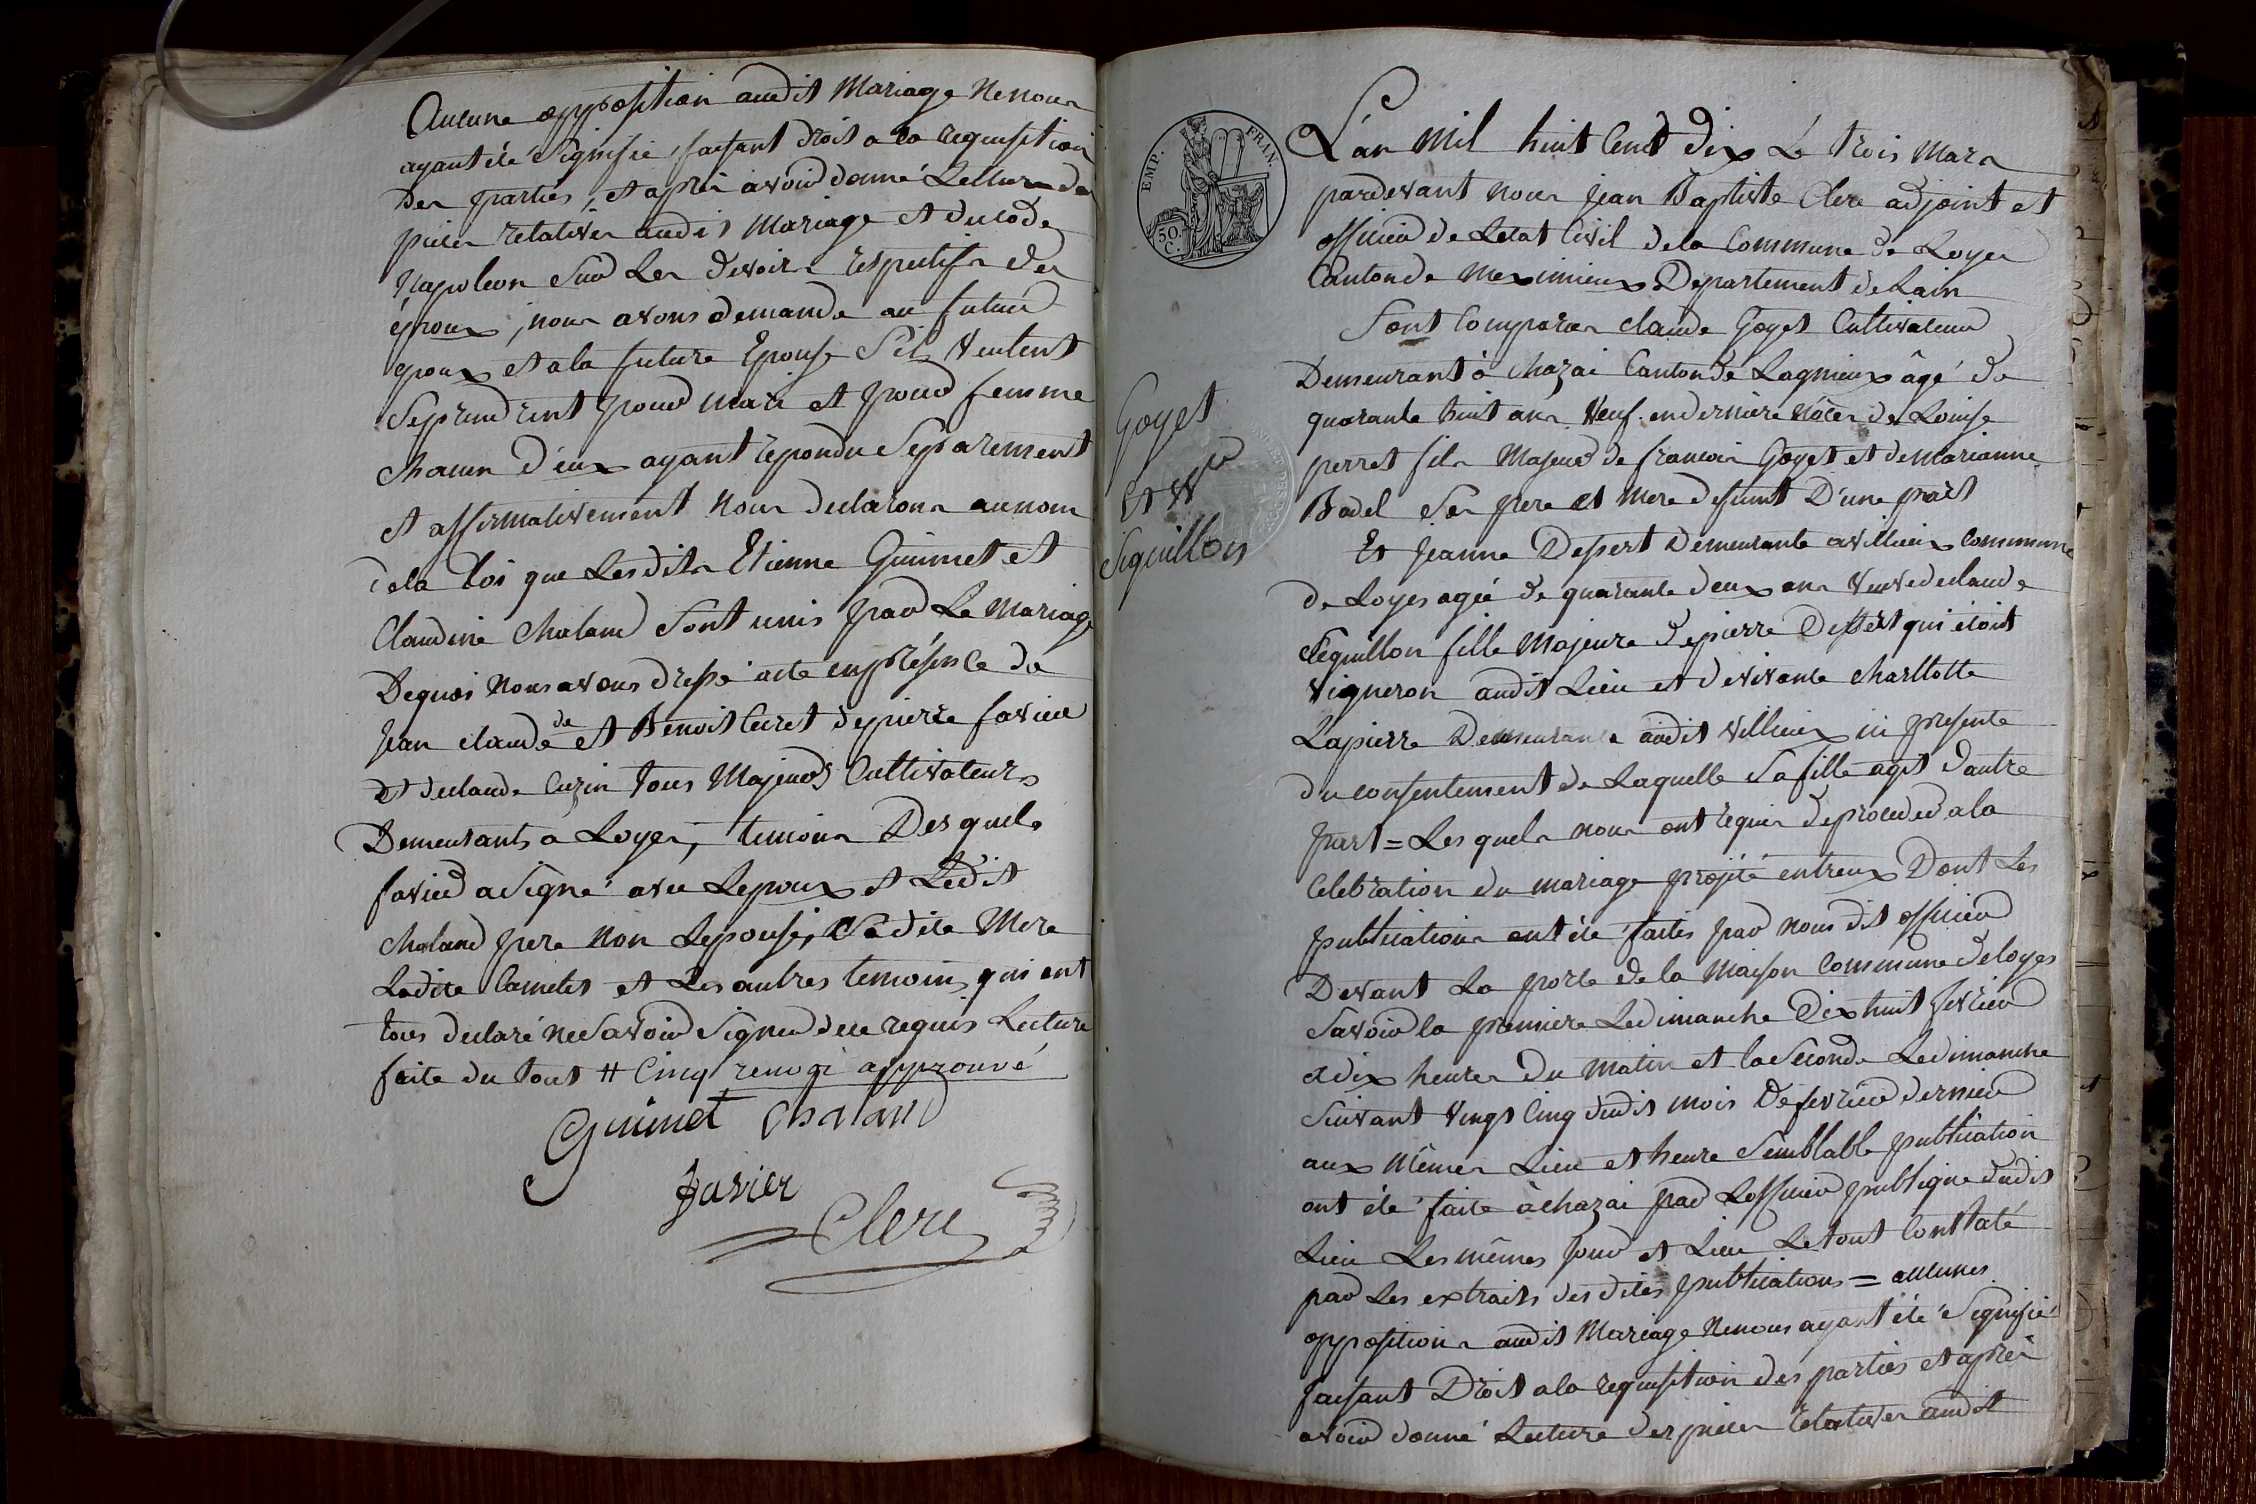 Aucune opposition audit Mariage Ne nous
ayant été Signifié, faisant droit a la requisition
Des parties, et aprés avoir donné Lecture des
pieces relatives audit Mariage et du code
Napoleon Sur Les devoirs respectifs des
époux, nous avons demandé au futur
epoux et a la future Epouse S'ils Veulent
Se prendrent pour mari et pour femme
chacun d'eux ayant repondu Separement
et affirmativement Nous declarons au nom
de la loi que Les dits Etienne Guimet et
Claudine Chaland Sont unis par Le Mariage
De quoi Nous avons dressé acte en présence de
Jean claude de et Benoit Curet de pierre favier
et de claude Cuzin tous Majeurs Cultivateurs
Demeurants a Loyes, temoins Des quels
favier a Signé avec Lepoux et Ledit
chaland pere Non Lepouse, Sadite Mere
Ladite et Les autres temoins qui ont
tous declaré ne Savoir Signer de ce requis Lecture
faite du tout # Cinq renvoi approuvé
Guimet Chaland
favier
Clerc
EMP. FRAN.
50. C.
Goyet
et Vve
Siquillon
L'an Mil huit Cent Dix Le trois Mars
pardevant nous Jean Baptiste Clerc adjoint et
officier de Letat Civil de la Commune de Loyes
Canton de Meximieux Departement de Lain
Sont Comparus claude Goyet Cultivateur
Demeurant à chazai Canton de Lagnieux âgé de
quarante huit ans Veuf en derniere Nôces de Louise
perret fils Majeur de francois Goyet et de marianne
Badel Ses pere et Mere defunt D'une part
Et Jeanne Dessert Demeurante a villieux Commune
de Loyes agée de quarante deux ans Veuve de claude
Sequillon fille Majeure de pierre Dessert qui étoit
Vigneron audit Lieu et de vivante charllotte
Lapierre Demeurante audit villieux ici presente
du consentement de Laquelle Sa fille agit d'autre
part = Les quels nous ont requis de proceder a la
Celebration du mariage projété entreux Dont Les
publications ont été faites par nous dit officier
Devant La porte de la Maison Commune de loyes
Savoir la premiere Le dimanche Dix huit fevrier
a dix heures du Matin et la Seconde Le dimanche
Suivant Vingt Cinq dudit mois De fevrier dernier
aux Mêmes Lieu et heure Semblable publication
ont été faite à chazai par Lofficier publique dudit
Lieu Les mêmes jour et Lieu Le tout Constaté
par Les extraits des dites publications = aucunes
oppositions audit Mariage Ne nous ayant été Signifié
faisant Droit a la requisition des parties et aprés
avoir donné Lecture des pieces relatives audit